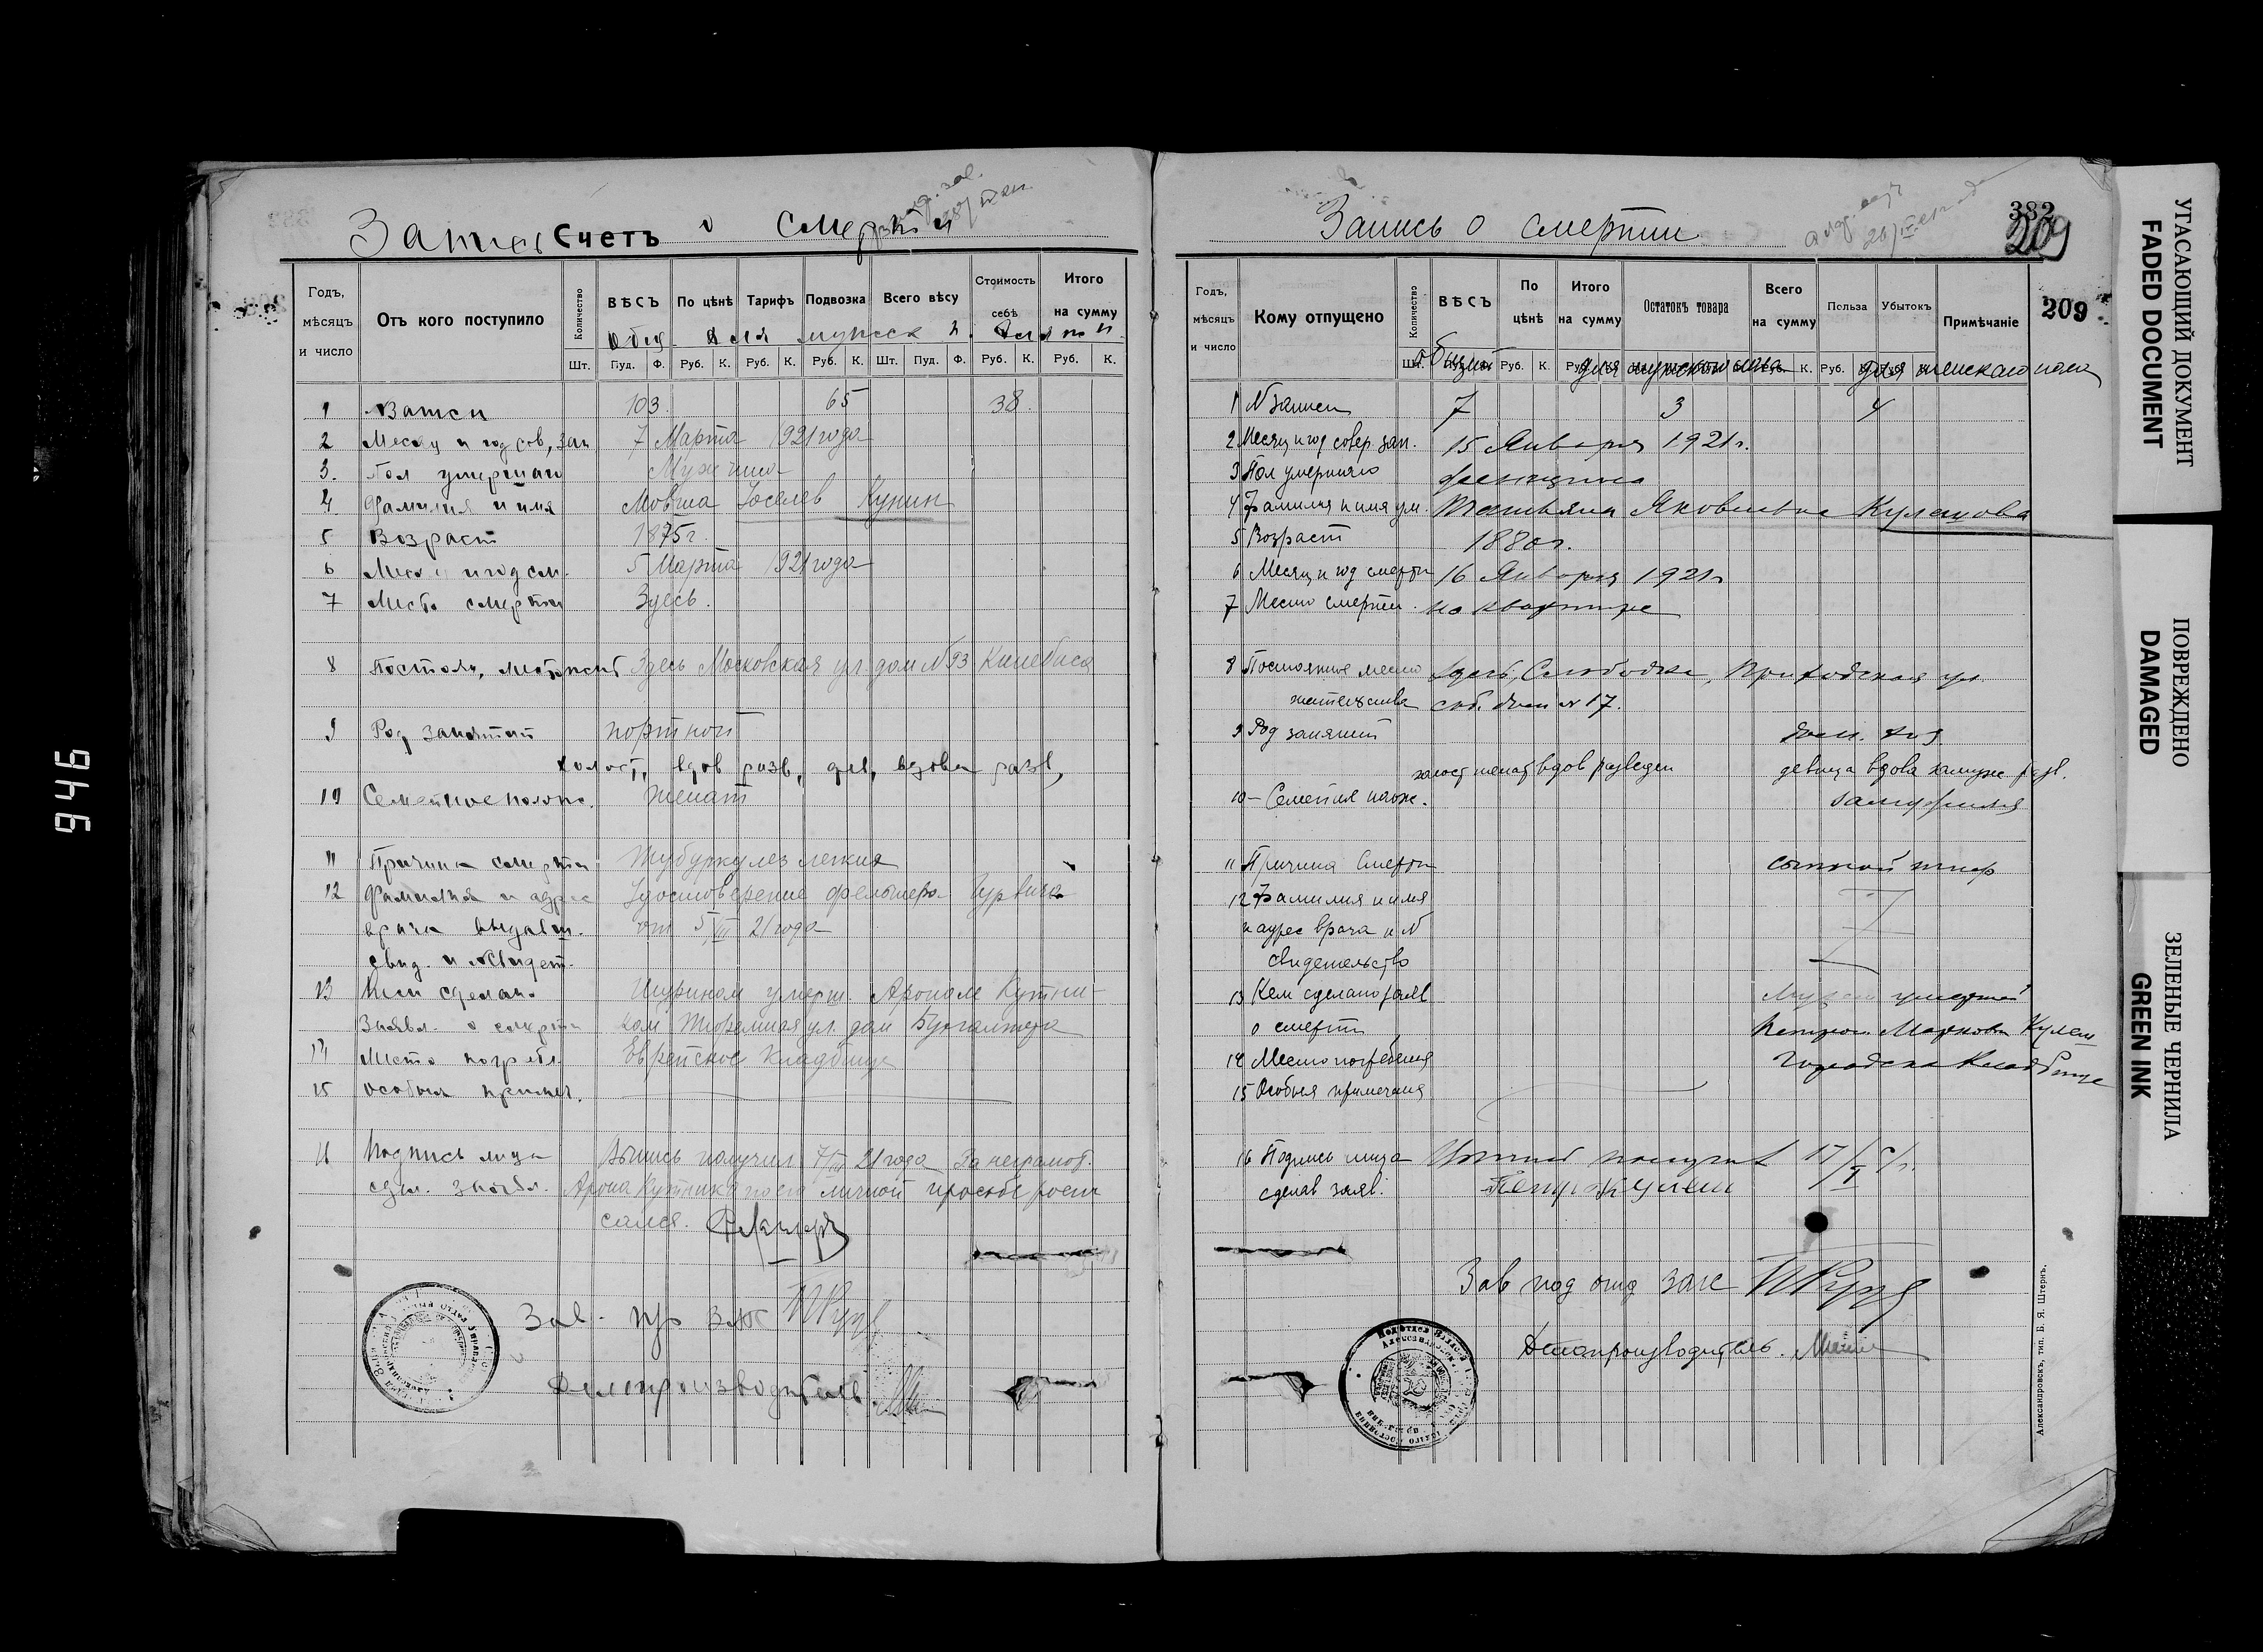 946
Запись о смерти
Счетъ
Годъ, мѣсяцъ и число
Отъ кого поступило
Количество
ВѢСЪ
По цѣнѣ
Тарифъ
Подвозка
Всего вѣсу
Стоимость себѣ
Итого на сумму
Общ. для мужск п. Для
Шт. Пуд. Ф. Руб. К. Руб. К. Руб. К. Шт. Пуд. Ф. Руб. К. Руб. К.
1 № Запси 103 65 38
2 Месяц и год сов, зап 7 Марта 1921 года
3. Пол умершаго Мужчина
4 Фамилия и имя Мовша Иоселев Кунин
5 Возраст 1875 г.
6 Меся и год см. 5 Марта 1921 года
7 Место смерти Здесь.
8 Постоян, мест жит Здесь Московская ул. дом № 93
9 Род занятий портной
холост, вдов разв, дев, вдова разв,
10 Семейное полож. женат
11 Причина смерти Туберкулез легких
12 Фамилия и адрес Удостоверение фельдшера Гурвича
врача выдавш. от 5/III 21 года
свид. и № свидет.
13 Кем сделано Шурином умерш. Ароном Кутни-
Заявл. о смерти ком Тюремная ул. дом Бухгалтера
14 Место погребл. Еврейское Кладбище
15 Особыя примеч.
16 Подпись лица Выпись получил 7/III 21 года За неграмот.
сдел. заявл. Арона Кутника по его личной просьбе распи
сался.
Зав. п/о ЗАГС
Делопроизводитель
Запись о смерти
382
209
209
Годъ, мѣсяцъ и число
Кому отпущено
Количество
ВѢСЪ
По цѣнѣ
Итого на сумму
Остатокъ товара
Всего на сумму
Польза
Убытокъ
Примѣчаніе
общій для мужского пола для женскаго пола
1 № записи 7 3 4
2 Месяц и год совер. зап. 15 Января 1921 г.
3 Пол умершаго женщина
4 Фамилия и имя ум. Татьяна Яковлевна Кулешова
5 Возраст 1880 г.
6 Месяц и год смерти 16 Января 1921 г
7 Место смерти. на квартире
8 Постоянное место здесь, Слободка, Приходская ул
жительства соб. дом № 17.
9 Род занятий дом. хоз.
холост женат вдов разведен девица вдова замуж разв.
10 – Семейная полож. замужняя
11 Причина смерти сыпной тиф
12 Фамилия и имя
и адрес врача и №
свидетельство
13 Кем сделано заяв Мужем умершей
о смерти Петром Марковым Кулеш
14 Место погребения Городское Кладбище
15 Особыя примечания
16 Подпись лица получил 17/I 21 г.
сделав заяв. Петр Кулеш
Зав под отд загс
Делопроизводитель.
Александровскъ, тип. Б. Я. Штернъ.
УГАСАЮЩИЙ ДОКУМЕНТ
FADED DOCUMENT
ПОВРЕЖДЕНО
DAMAGED
ЗЕЛЕНЫЕ ЧЕРНИЛА
GREEN INK